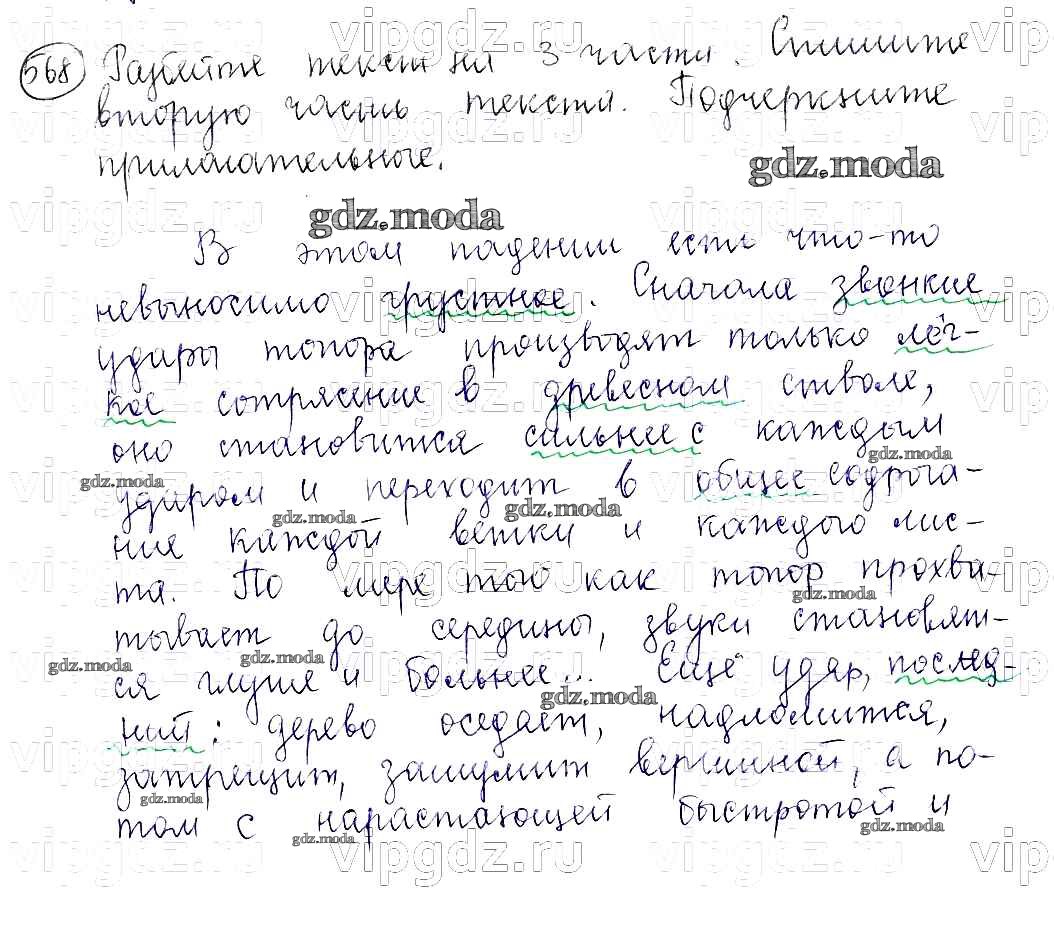 568 Разбейте текст на 3 части. Спишите
вторую часть текста. Подчеркните
прилагательные.
gdz.moda
gdz.moda
В этом падении есть что-то
невыносимо грустное. Сначала звонкие
удары топора производят только лёг-
кое сотрясение в древесном стволе,
оно становится сильнее с каждым
ударом и переходит в общее содрога-
ние каждой ветки и каждого лис-
та. По мере того как топор прохва-
тывает до середины, звуки становят-
ся глуше и больнее... Ещё удар, послед-
ний: дерево оседает, надломится,
затрещит, зашумит вершиной, а по-
том с нарастающей быстротой и
gdz.moda
vipgdz.ru